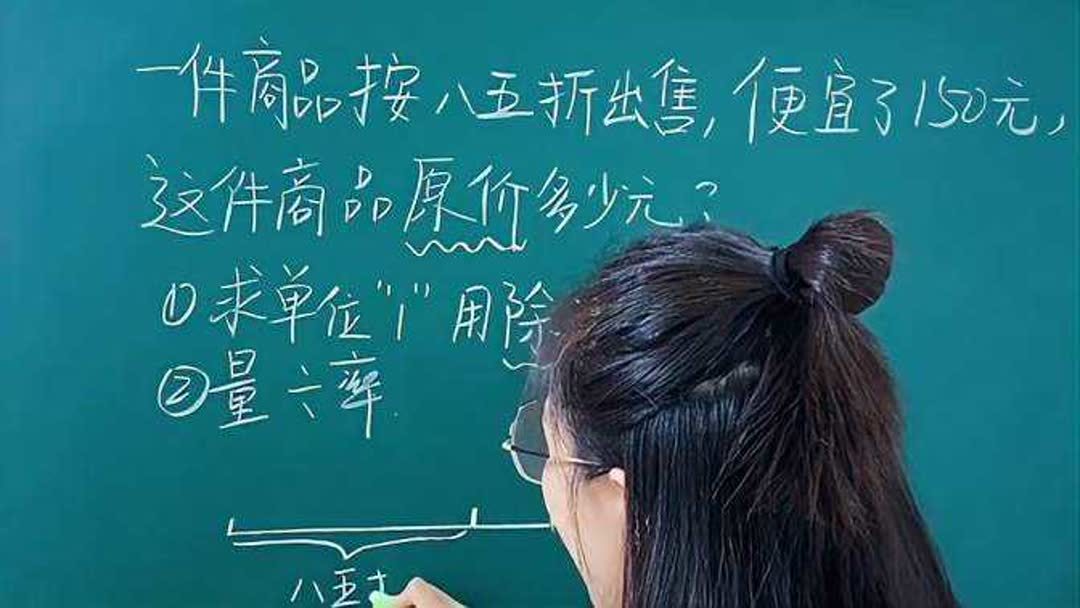 一件商品按八五折出售,便宜了150元,
这件商品原价多少元?
①求单位"1"用除
②量÷率.
八五